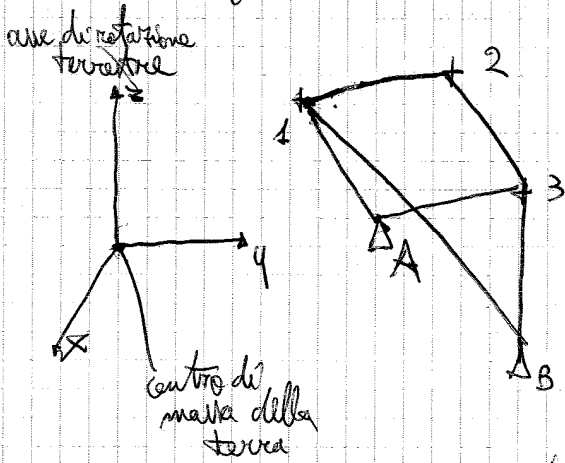 asse di rotazione
terrestre
z
y
x
centro di
massa della
terra
1
2
3
A
B